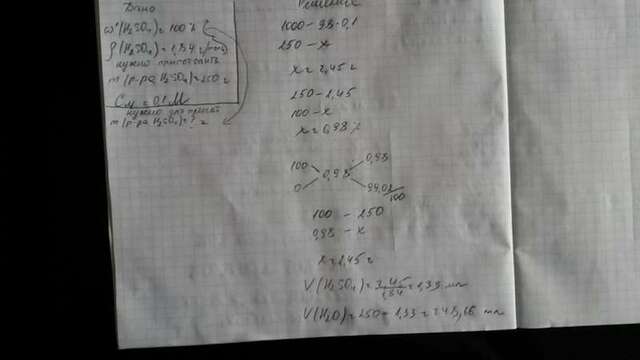 Дано
ω(H₂SO₄) = 100%
ρ(H₂SO₄) = 1,84 г/мл
нужно приготовить
m(р-ра H₂SO₄) = 250 г
Cм = 0,1 М
нужно для пригот
m(р-ра H₂SO₄) = ? г
Решение
1000 - 98·0,1
250 - x
x = 2,45 г
250 - 2,45
100 - x
x = 0,98 %
100 0,98
0,98
0 99,02/100
100 - 250
0,98 - x
x = 2,45 г
V(H₂SO₄) = 2,45/1,84 = 1,33 мл
V(H₂O) = 250 - 1,33 = 248,66 мл